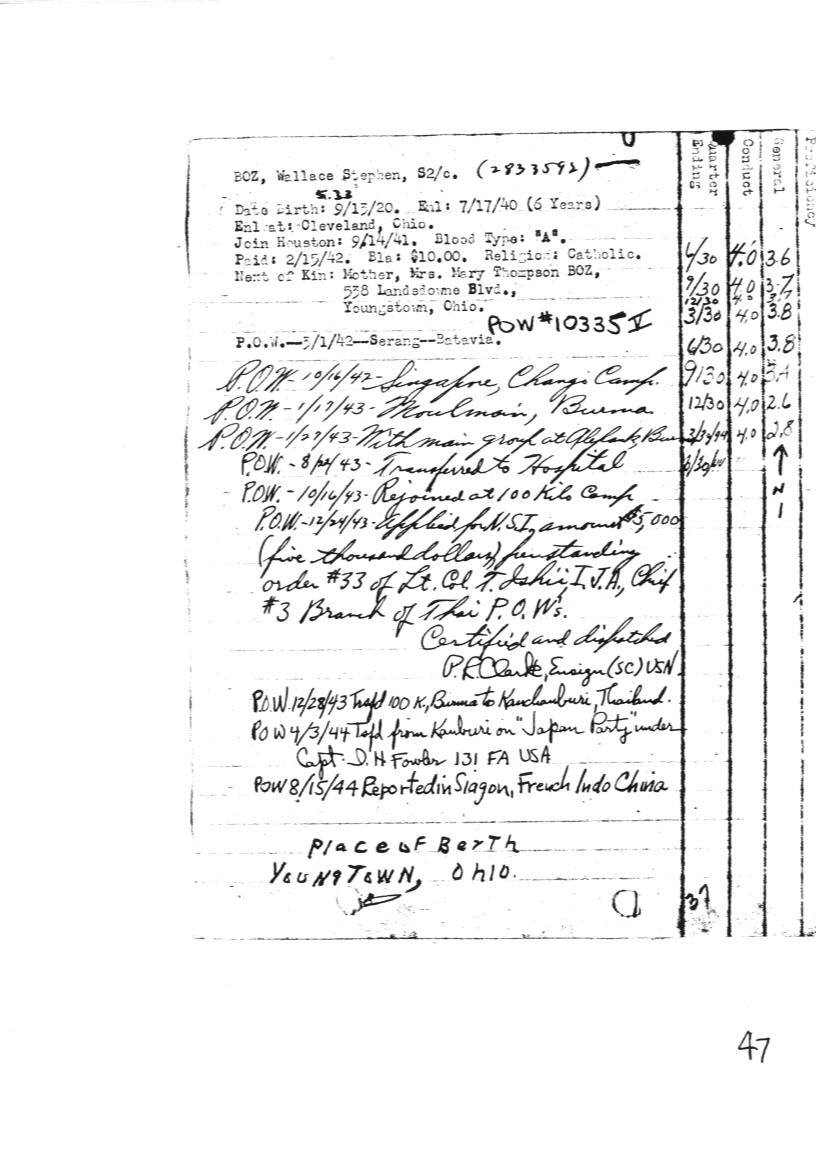 BOZ, Wallace Stephen, S2/c. (2833592)
Date Birth: 9/15/20. Enl: 7/17/40 (6 Years)
Enl at: Cleveland, Ohio.
Join Houston: 9/14/41. Blood Type: "A".
Paid: 2/15/42. Bla: $10.00. Religion: Catholic.
Next of Kin: Mother, Mrs. Mary Thompson BOZ,
538 Landsdowne Blvd.,
Youngstown, Ohio.
POW #10335 V
P.O.W.--3/1/42--Serang--Batavia.
P.O.W- 10/16/42- Singapore, Changi Camp.
P.O.W. - 1/17/43- Moulmain, Burma
P.O.W- 1/27/43- With main group at
P.O.W. - 8/ /43- Transferred to Hospital
P.O.W. - 10/16/43- Rejoined at 100 Kilo Camp
P.O.W.-12/24/43- Applied for N.S.I., amount $5,000
(five thousand dollars) standing
order #33 of Lt. Col. T. Ishii, I.J.A., Chief
#3 Branch of Thai P.O.W's.
Certified and dispatched
P.R. Clark, Ensign (SC) USN
P.O.W. 12/28/43 Trafd 100 K., Burma to Kanchanburi, Thailand.
POW 4/3/44 Tsfd from Kanburi on "Japan Party" under
Capt. D. H Fowler 131 FA USA
POW 8/15/44 Reported in Siagon, French Indo China
Place oF BerTh
YoungTown, Ohio.
Quarter Ending Conduct General Proficiency
6/30 4.0 3.6
9/30 4.0 3.7
12/30 4.0
3/30 4.0 3.8
6/30 4.0 3.8
9/30 4.0
12/30 4.0 2.6
4.0 2.8
37
47